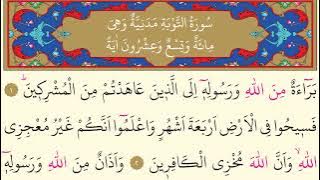 سُورَةُ التَّوْبَةِ مَدَنِيَّةٌ وَهِىَ
مِائَةٌ وَتِسْعٌ وَعِشْرُونَ اٰيَةً
بَرَٓاءَةٌ مِنَ اللّٰهِ وَرَسُولِه۪ٓ اِلَى الَّذ۪ينَ عَاهَدْتُمْ مِنَ الْمُشْرِك۪ينَۜ ﴿١﴾
فَس۪يحُوا فِى الْاَرْضِ اَرْبَعَةَ اَشْهُرٍ وَاعْلَمُٓوا اَنَّكُمْ غَيْرُ مُعْجِزِى
اللّٰهِۙ وَاَنَّ اللّٰهَ مُخْزِى الْكَافِر۪ينَ ﴿٢﴾ وَاَذَانٌ مِنَ اللّٰهِ وَرَسُولِه۪ٓ